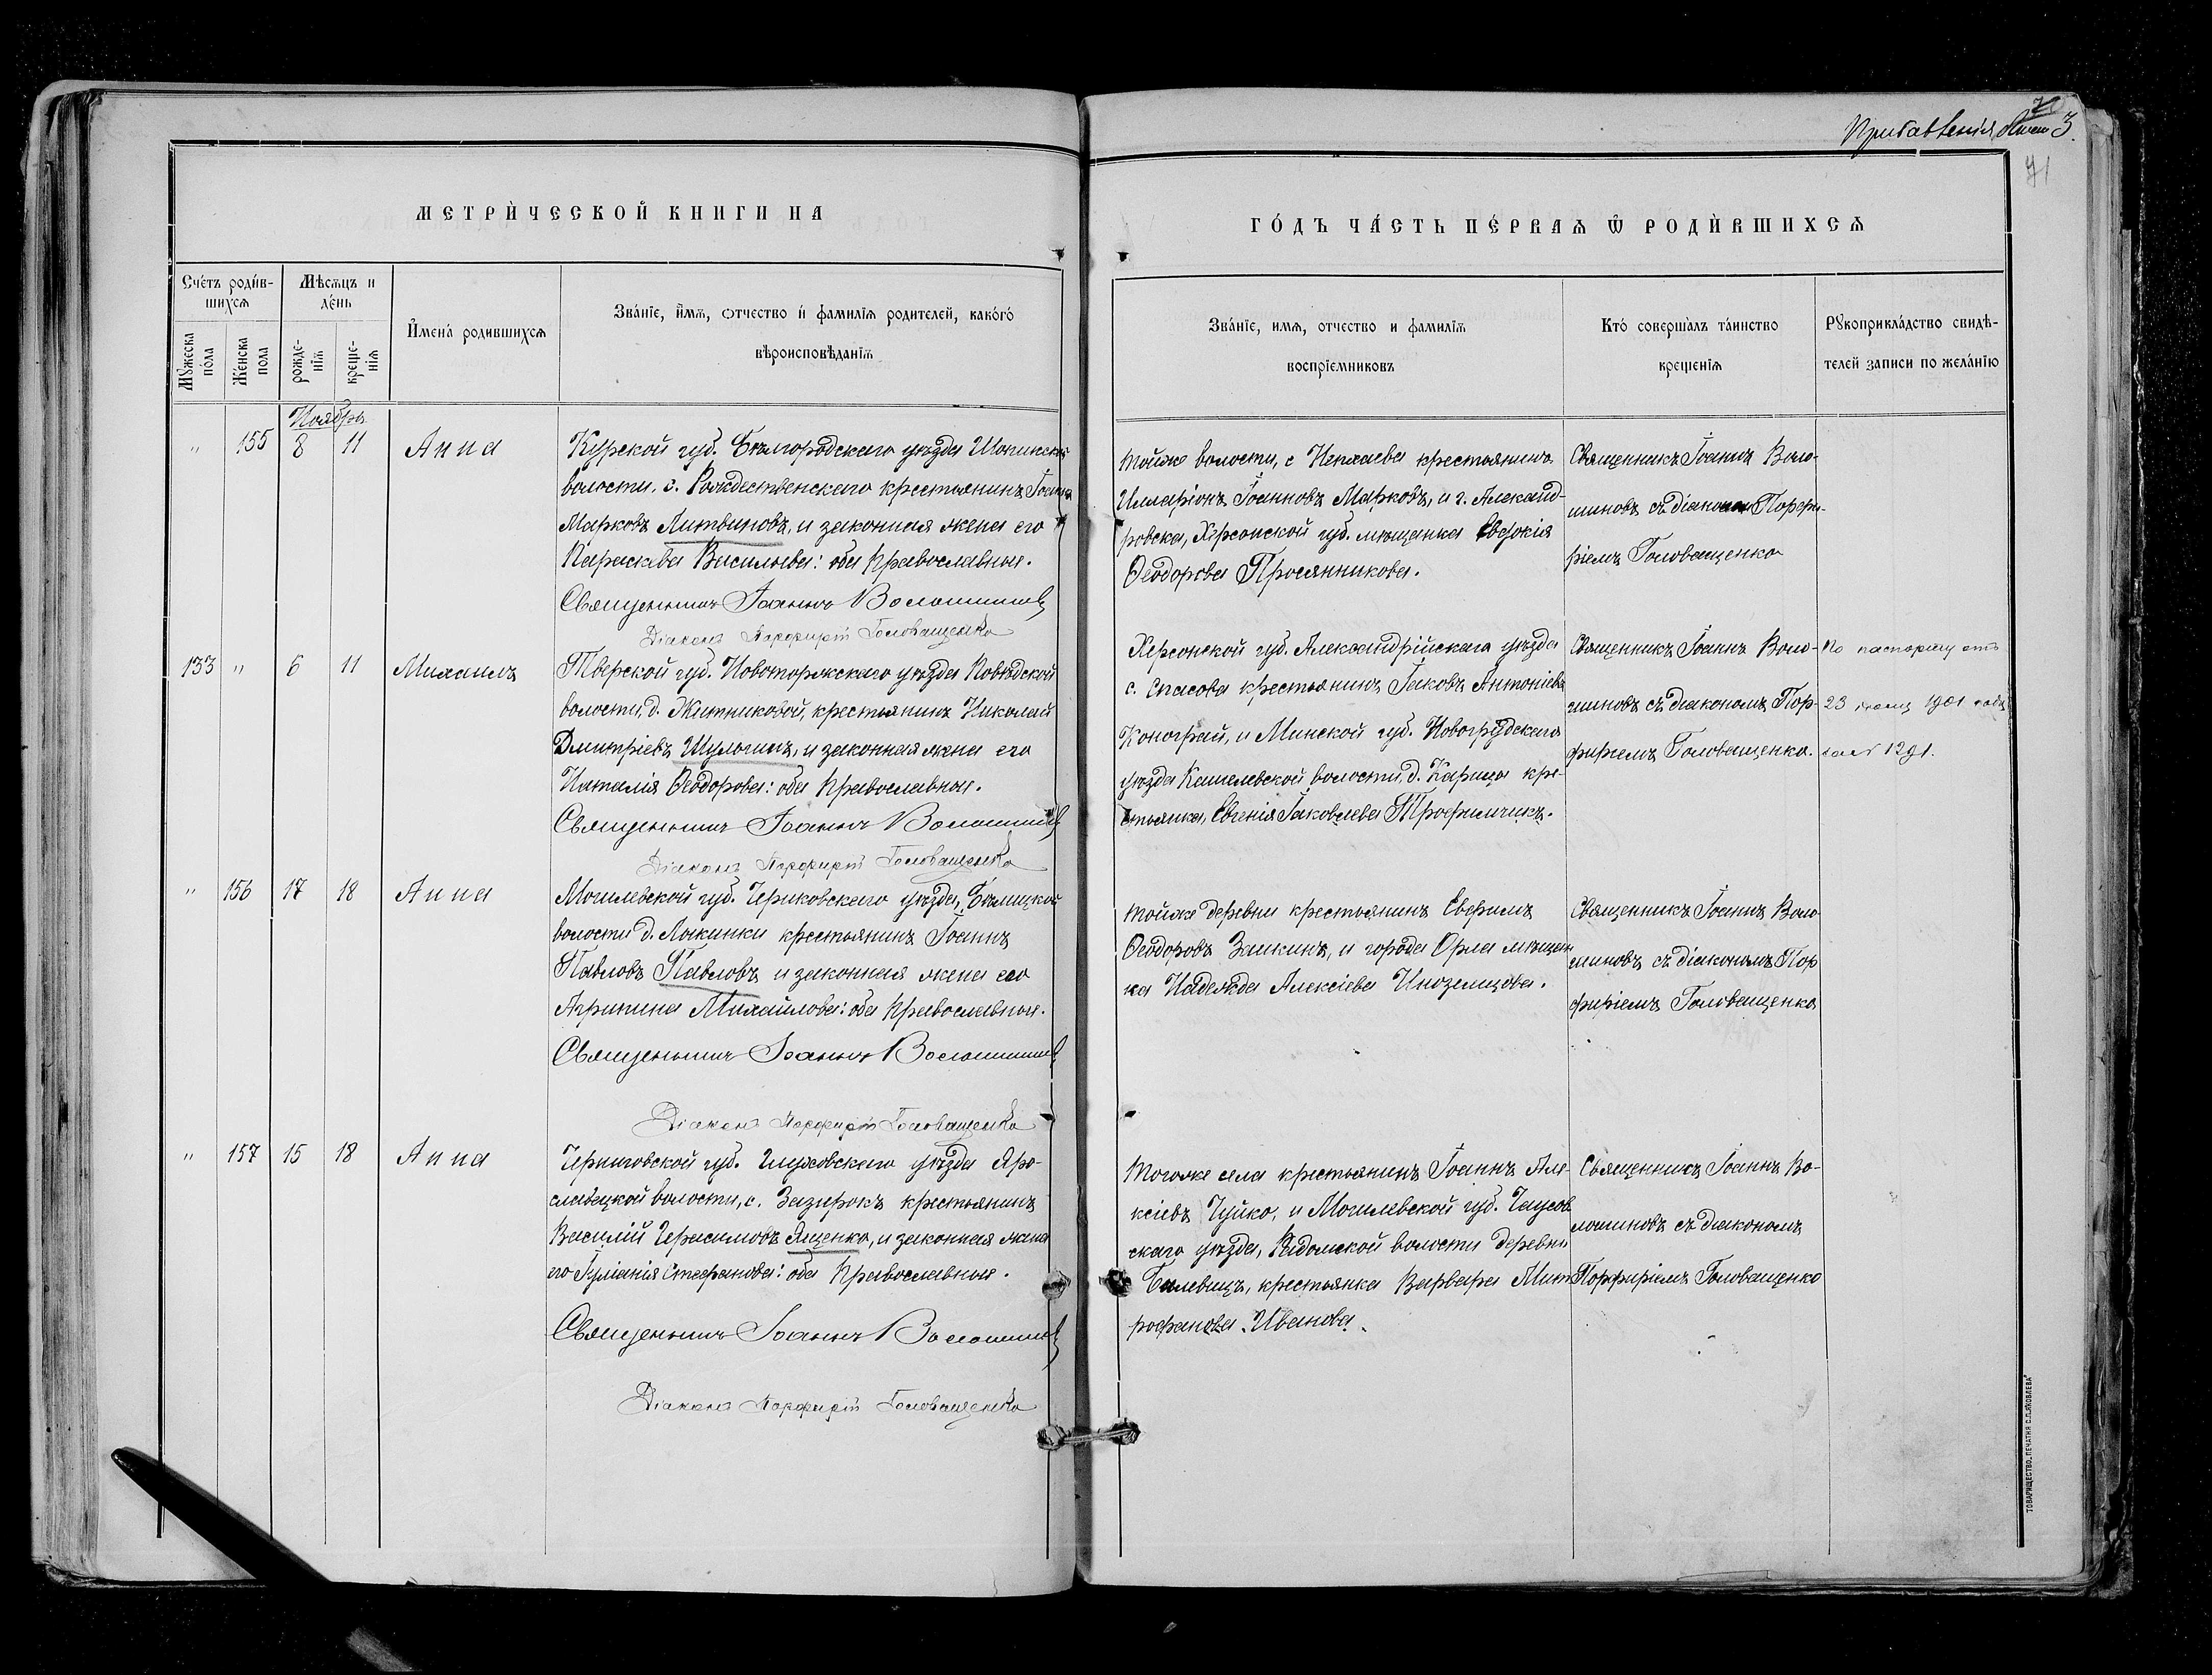 70
Прибавленія 3.
71
МЕТРИ́ЧЕСКОЙ КНИГИ НА
ГО́ДЪ ЧА́СТЬ ПЕ́РВАѦ Ѡ҆ РОДИ́ВШИХСѦ
Сче́тъ роди́в-
шихсѧ
Мꙋ́жеска по́ла
Же́нска пола
Мѣ́сѧцъ и
де́нь
рожде-
нїѧ
креще-
нїѧ
И҆мена́ родившихсѧ
Зва́нїе, и҆́мѧ, ѻтчество и҆ фамилїѧ родителей, како́го́
вѣроисповѣ́данїѧ
Зва́нїе, имѧ, отчество и фамилїѧ
воспрїемниковъ
Кто́ соверша̀лъ та́инство
крещенїѧ
Рꙋкоприкла́дство свидѣ-
телей записи по жела́нїю
Ноябрь
" 155 8 11 Анна
Курской губ. Бѣлгородскаго уѣзда
волости, с. Рождественскаго крестьянинъ Іоаннъ
Марковъ Литвиновъ, и законная жена его
Параскева Васильева: оба Православные.
Священникъ Іоаннъ Волошиновъ
Діаконъ Порфирій Головащенко
тойже волости, с крестьянинъ
Илларіонъ Іоанновъ Марковъ, и г. Александ-
ровска, Херсонской губ. мѣщанка Евдокія
Ѳеодорова Просянникова.
Священникъ Іоаннъ Воло-
шиновъ съ діакономъ Порфи-
ріемъ Головащенко
133 " 6 11 Михаилъ
Тверской губ. Новоторжскаго уѣзда Повѣдской
волости, д. Житниковой, крестьянинъ Николай
Дмитріевъ Шульгинъ, и законная жена его
Наталія Ѳеодорова: оба Православные.
Священникъ Іоаннъ Волошиновъ
Діаконъ Порфирій Головащенко
Херсонской губ. Александрійскаго уѣзда
с. Спасова крестьянинъ Іаковъ Антоніевъ
Конограй, и Минской губ. Новогрудскаго
уѣзда Кашелевской волости, д. Карица кре-
стьянка, Евгенія Іаковлева Трофимчикъ.
Священникъ Іоаннъ Воло-
шиновъ съ діакономъ Пор-
фиріемъ Головащенко.
По паспорту отъ
23 1901 года
за № 1291.
" 156 17 18 Анна
Могилевской губ. Чериковскаго уѣзда, Бѣлицкой
волости д. Лыкинки крестьянинъ Іоаннъ
Павловъ Павловъ, и законная жена его
Агрипина Михайлова: оба Православные.
Священникъ Іоаннъ Волошиновъ
Діаконъ Порфирій Головащенко
тойже деревни крестьянинъ Евфимъ
Ѳеодоровъ Заикинъ, и города Орла мѣщан
ка Надежда Алексіева Иноземцова.
Священникъ Іоаннъ Воло
шиновъ съ діакономъ Пор
фиріемъ Головащенко
" 157 15 18 Анна
Черниговской губ. Глуховскаго уѣзда Яро-
славецкой волости, с. Зазирокъ крестьянинъ
Василій Герасимовъ Ященко, и законная жена
его Іуліанія Стефанова: оба Православные.
Священникъ Іоаннъ Волошиновъ
Діаконъ Порфирій Головащенко
тогоже села крестьянинъ Іоаннъ Але-
ксіевъ Чуйко, и Могилевской губ. Чаусов
скаго уѣзда, Радомской волости деревни
Балевицъ, крестьянка Варвара Мит
рофанова Иванова.
Священникъ Іоаннъ Во-
лошиновъ съ діакономъ
Порфиріемъ Головащенко
ТОВАРИЩЕСТВО „ПЕЧАТНЯ С.П.ЯКОВЛЕВА"